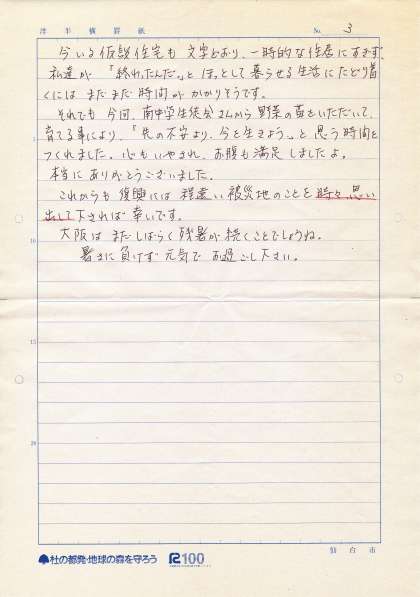 洋半横罫紙
No. 3
今いる仮設住宅も文字どおり、一時的な住居にすぎず、
私達が「終わったんだ。」とほっとして暮らせる生活にたどり着
くにはまだまだ時間がかかりそうです。
それでも今回、南中学生徒会さんから野菜の苗をいただいて、
育てる事により、「先の不安より、今を生きよう。」と思う時間を
つくれました。心もいやされ、お腹も満足しましたよ。
本当にありがとうございました。
これからも復興には程遠い被災地のことを時々思い
出して下されば幸いです。
大阪はまだしばらく残暑が続くことでしょうね。
暑さに負けず元気でお過ごし下さい。
5
10
15
20
杜の都発・地球の森を守ろう
R100
仙台市